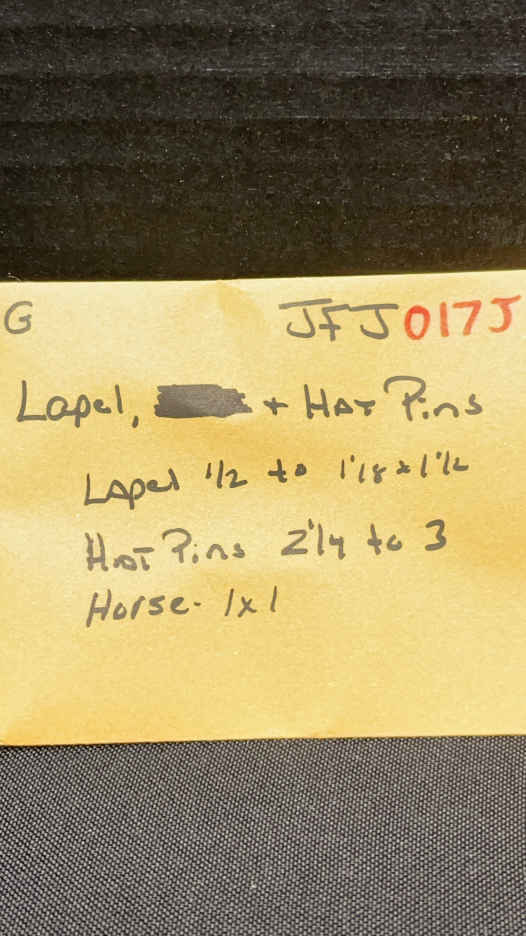 G JFJ017J
Lapel, + HAT Pins
LApel 1/2 to 1 1/8 x 1 1/2
HAT Pins 2 1/4 to 3
Horse- 1x1